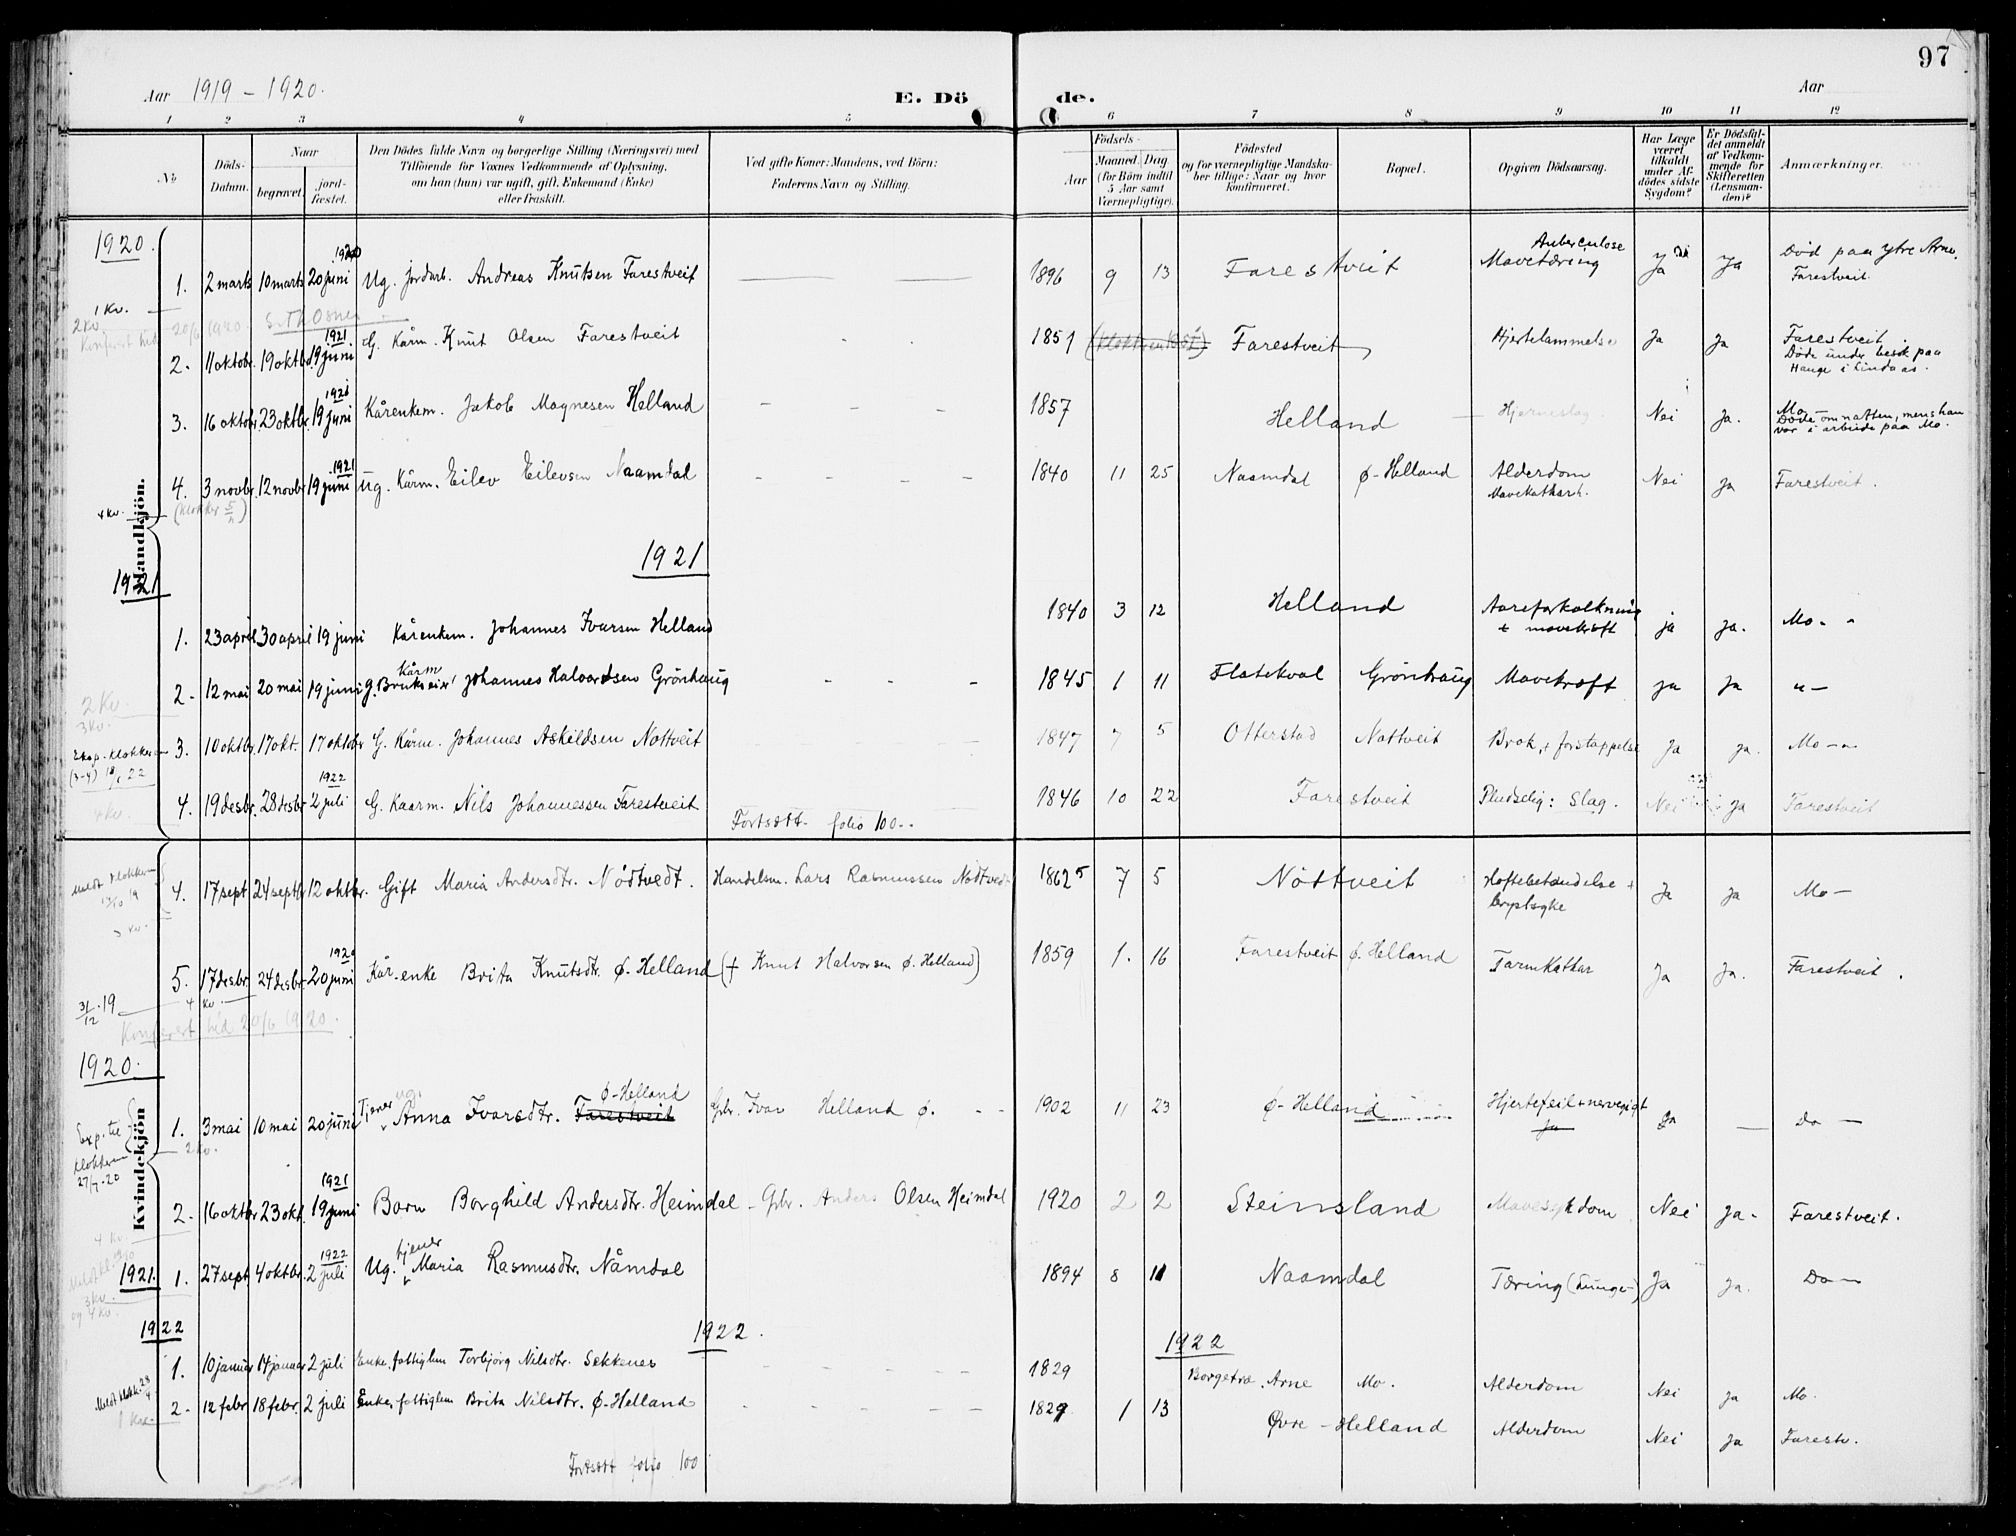 97
Aar 1919 - 1920.
E. Dö de.
Aar
1 2 3 4 5 6 7 8 9 10 11 12
No
Döds-Datum.
Naar
begravet.
jord-fæstet.
Den Dödes fulde Navn og borgerlige Stilling (Næringsvei) med
Tilföiende for Voxnes Vedkommende af Oplysning,
om han (hun) var ugift, gift, Enkemand (Enke)
eller fraskilt.
Ved gifte Koner: Mandens, ved Börn:
Faderens Navn og Stilling.
Aar
Födsels-
Maaned. Dag
(for Börn indtil
5 Aar samt
Værnepligtige).
Födested
og for værnepligtige Mandska-
ber tillige: Naar og hvor
konfirmeret.
Bopæl.
Opgiven Dödsaarsag.
Har Læge
været
tilkaldt
under Af-
dödes sidste
Sygdom?
Er Dödsfal-
det anmeldt
af Vedkom-
mende for
Skifteretten
(Lensman-
den)?
Anmærkninger.
Mandkjön.
1920.
1. 2 marts 10 marts 20 juni 1920 Ug. jordarb. Andreas Knutsen Farestveit 1896 9 13 Farestveit Tuberculose Mavetæring Ja Ja Död paa Ytre Arne. Farestveit.
1 Kv.
2 Kv.
Konferert hid 20/6 1920. S. Th Osnes
2. 11 oktobr. 19 oktbr. 19 juni 1921 G. Kårm. Knut Olsen Farestveit 1851 Farestveit Hjertelammelse Ja Ja Farestveit. Döde under besök paa Hauge i Lindaas.
3. 16 oktobr 23 oktbr. 19 juni 1921 Kårenkem. Jakob Magnesen Helland 1857 Helland Hjerneslag. Nei Ja. Mo Döde om natten, mens han var i arbeide paa Mo.
4. 3 novbr 12 novbr 19 juni 1921 Ug. Kårm. Eilev Eilevsen Naamdal 1840 11 25 Naamdal Ø-Helland Alderdom Mavekatharh. Nei Ja Farestveit.
4 Kv. (Klokker 5/11)
1921
1921
1. 23 april 30 april 19 juni Kårenkem. Johannes Ivarsen Helland 1840 3 12 Helland Aareforkalkning + mavekræft ja ja. Mo -
2 - 12 mai 20 mai 19 juni g. Bruks eier Kårm Johannes Halvardsen Grönhaug 1845 1 11 Flatekval Grönhaug Mavekræft ja ja " -
2 Kv.
3 Kv.
3. 10 oktbr. 17 okt. 17 oktobr G. Kårm. Johannes Askildsen Nottveit 1847 7 5 Otterstad Nottveit Brok, + forstoppelse Ja ja. Mo -
Eksp. Klokkeren (3-4) 18/1 22
4. 19 desbr. 28 desbr 2 juli 1922 G. Kaarm. Nils Johannessen Farestveit 1846 10 22 Farestveit Pludselig: Slag. Nei ja Farestveit
4 Kv.
Fortsatt folio 100 --
Kvindekjön
4. 17 sept 24 septbr 12 oktbr. Gift Maria Andersdtr. Nödtvedt. Handelsm. Lars Rasmussen Nödtvedt 1865 7 5 Nöttveit Hoftebetændelse + Ja ja Mo -
Meldt Klokkeren 13/10 19
3 Kv.
5. 17 desbr. 24 desbr. 20 juni 1920 Kår-enke Brita Knutsdtr. Ø-Helland († Knut Halvorsen Ø. Helland) 1859 1. 16 Farestveit Ø. Helland Tarmkathar Ja Ja. Farestveit.
31/12 . 19 4 Kv.
Konferert hid 20/6 1920.
1920.
1. 3 mai 10 mai 20 juni Tjener ug. Anna Ivarsdtr. Farestveit Ø-Helland Gbr. Ivar Helland Ø. 1902 11 23 Ø-Helland Hjertefeil + nervegigt Ja Do -
Exp. til klokkeren 27/7-20
2 Kv.
2 - 16 oktbr 23 okt. 19 juni 1921 Barn Borghild Andersdtr. Heimdal - Gbr. Anders Olsen Heimdal 1920 2 2 Steinsland Mavesykdom Nei ja - Farestveit.
4 Kv.
1921. 1. 27 sept 4 oktbr. 2 juli 1922 Ug. tjener Maria Rasmusdtr. Nåmdal 1894 8 11 Naamdal Tæring (Lunge-) Ja ja. Do -
3 Kv. og 4 Kv.
1922
1922.
1922
1. 10 januar 14 januar 2 juli Enke, fattiglem Torbjörg Nilsdtr. Sekkenes 1829 Borgetræ, Arne Mo. Alderdom Nei ja Mo.
2 - 12 febr 18 febr. 2 juli Enke, fattiglem Brita Nilsdtr. Ø-Helland 1829 1 13 Övre - Helland Alderdom Nei ja Farestv.
Fortsatt folio 100